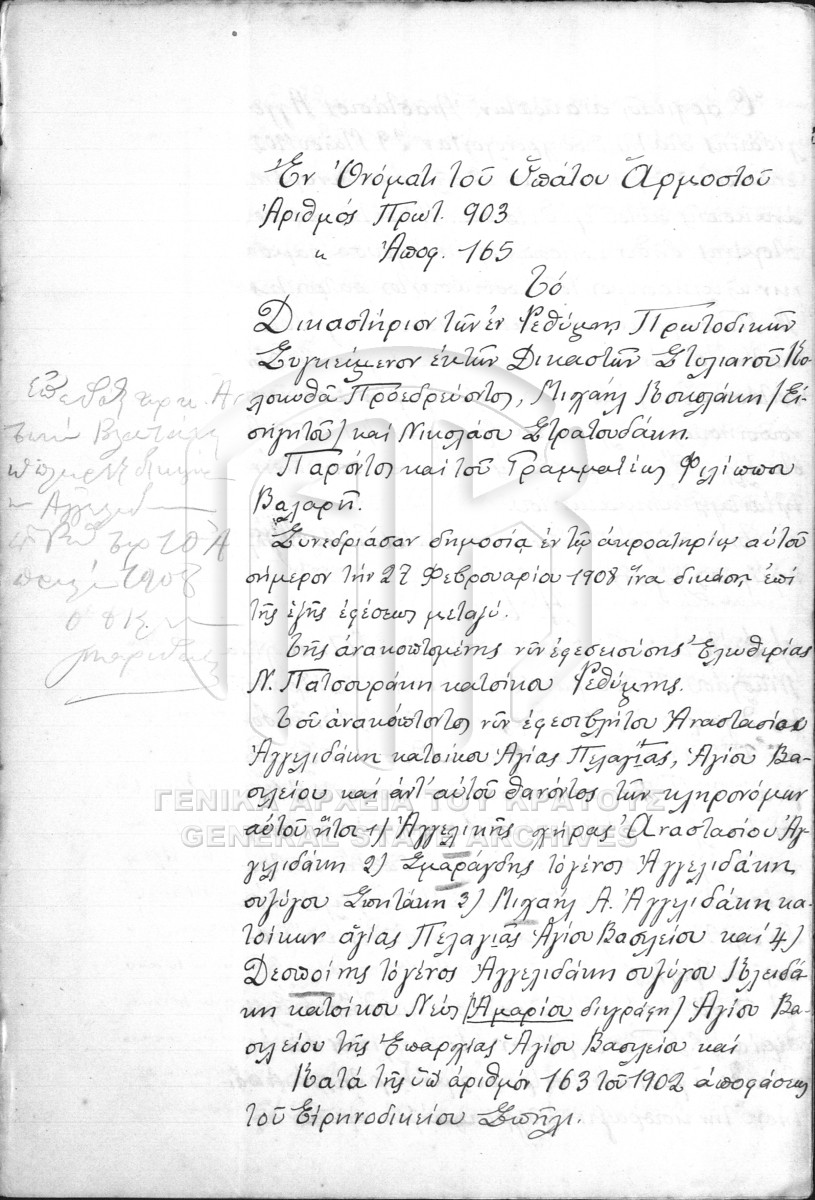 Ἐν Ὀνόματι τοῦ Ὑπάτου Ἁρμοστοῦ
Ἀριθμός Πρωτ. 903
〃 Ἀποφ. 165
Τό
Δικαστήριον τῶν ἐν Ρεθύμνῃ Πρωτοδικῶν
Συγκείμενον ἐκ τῶν Δικαστῶν Στυλιανοῦ Κο-
λοκυθᾶ Προεδρεύοντος, Μιχαήλ Κουκλάκη /Εἰ-
σηγητοῦ/ καί Νικολάου Στρατουδάκη.
Παρόντος καί τοῦ Γραμματέως Φιλίππου
Βαλαρῆ.
Συνεδριάσαν δημοσίᾳ ἐν τῷ ἀκροατηρίῳ αὐτοῦ
σήμερον τήν 27 Φεβρουαρίου 1908 ἵνα δικάσῃ ἐπί
τῆς ἑξῆς ἐφέσεως μεταξύ.
Τῆς ἀνακοπτομένης νῦν ἐφεσειούσης Ἐλευθερίας
Ν. Πατσουράκη κατοίκου Ρεθύμνης.
Τοῦ ἀνακόπτοντος νῦν ἐφεσιβλήτου Ἀναστασίου
Ἀγγελιδάκη κατοίκου Ἁγίας Πελαγίας, Ἁγίου Βα-
σιλείου καί ἀντ' αὐτοῦ θανόντος τῶν κληρονόμων
αὐτοῦ ἤτοι 1) Ἀγγελικῆς χήρας Ἀναστασίου Ἀγ-
γελιδάκη 2) Σμαράγδης τό γένος Ἀγγελιδάκη
συζύγου Σπιτάκη 3) Μιχαήλ Α. Ἀγγελιδάκη κα-
τοίκων ἁγίας Πελαγίας Ἁγίου Βασιλείου καί 4)
Δεσποίνης τό γένος Ἀγγελιδάκη συζύγου Κλειδά-
κη κατοίκου Νεύς /Ἀμαρίου διγράφη/ Ἁγίου Βα-
σιλείου τῆς Ἐπαρχίας Ἁγίου Βασιλείου καί
Κατά τῆς ὑπ' ἀριθμόν 163 τοῦ 1902 ἀποφάσεως
τοῦ Εἰρηνοδικείου Σπηλι.
ΓΕΝΙΚΑ ΑΡΧΕΙΑ ΤΟΥ ΚΡΑΤΟΥΣ
GENERAL STATE ARCHIVES